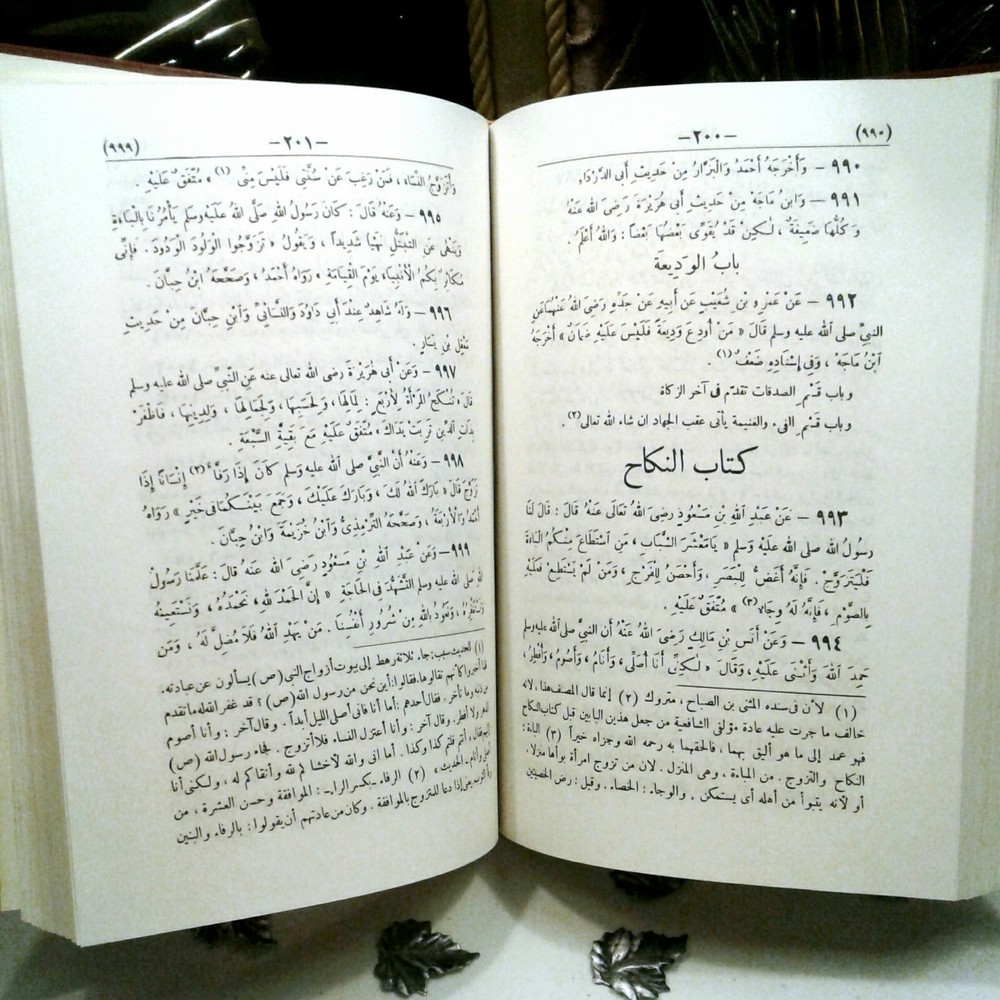 (٩٩٠) —٢٠٠—
٩٩٠ — وَأَخْرَجَهُ أَحْمَدُ وَالْبَزَّارُ مِنْ حَدِيثِ أَبِى الدَّرْدَاءِ
٩٩١ — وَابْنُ مَاجَهْ مِنْ حَدِيثِ أَبِى هُرَيْرَةَ رَضِىَ اللهُ عَنْهُ
وَكُلُّهَا ضَعِيفَةٌ ، لٰكِنْ قَدْ يُقَوِّى بَعْضُهَا بَعْضاً : وَاللهُ أَعْلَمُ .
بابُ الوَدِيعَة
٩٩٢ — عَنْ عَمْرِو بْنِ شُعَيْبٍ عَنْ أَبِيهِ عَنْ جَدِّهِ رَضِىَ اللهُ عَنْهُمَا عَنِ
النبىِّ صلى الله عليه وسلم قَالَ « مَنْ أُودِعَ وَدِيعَةً فَلَيْسَ عَلَيْهِ ضَمَانٌ » أَخْرَجَهُ
ابْنُ مَاجَهْ ، وَفِى إِسْنَادِهِ ضَعْفٌ (١) .
وباب قَسْمِ الصدقات تقدّم فى آخر الزكاة
وباب قَسْمِ الفىء والغنيمة يأتى عقب الجهاد ان شاء الله تعالى (٢) .
كتاب النكاح
٩٩٣ — عَنْ عَبْدِ اللهِ بْنِ مَسْعُودٍ رَضِىَ اللهُ تَعَالَى عَنْهُ قَالَ : قَالَ لَنَا
رسولُ اللهِ صلى الله عَلَيْهِ وَسلم « يَامَعْشَرَ الشَّبَابِ ، مَنِ اسْتَطَاعَ مِنْكُمُ الْبَاءَةَ
فَلْيَتَزَوَّجْ . فَإِنَّهُ أَغَضُّ لِلْبَصَرِ ، وَأَحْصَنُ لِلْفَرْجِ ، وَمَنْ لَمْ يَسْتَطِعْ فَعَلَيْهِ
بِالصَّوْمِ ، فَإِنَّهُ لَهُ وِجَاءٌ (٣) » مُتَّفَقٌ عَلَيْهِ .
٩٩٤ — وَعَنْ أَنَسِ بْنِ مَالِكٍ رَضِىَ اللهُ عَنْهُ أن النبى صلى الله عليه وسلم
حَمِدَ اللهَ وَأَثْنَى عَلَيْهِ ، وَقَالَ « لٰكِنِّى أَنَا أُصَلِّى ، وَأَنَامُ ، وَأَصُومُ ، وَأُفْطِرُ ،
(١) لأن فى سنده المثنى بن الصباح ، متروك (٢) إنما قال المصنف هذا ، لأنه
خالف ما جرت عليه عادة مؤلفى الشافعية من جعل هذين البابين قبل كتاب النكاح
فهو عمد إلى ما هو أليق بهما ، فالحقهما به رحمه الله وجزاه خيراً (٣) الباءة :
النكاح والتزوج . من المباءة ، وهى المنزل . لان من تزوج امرأة بوأها منزلا .
أو لأنه يتبوأ من أهله أى يستمكن . والوجاء : الخصاء . وقيل : رض الخصيتين
—٢٠١— (٩٩٩)
وَأَتَزَوَّجُ النِّسَاءَ ، فَمَنْ رَغِبَ عَنْ سُنَّتِى فَلَيْسَ مِنِّى (١) » مُتَّفَقٌ عَلَيْهِ .
٩٩٥ — وَعَنْهُ قَالَ : كَانَ رَسُولُ اللهِ صَلَّى اللهُ عَلَيْهِ وَسلم يَأْمُرُنَا بِالْبَاءَةِ
وَيَنْهَى عَنِ التَّبَتُّلِ نَهْياً شَدِيداً ، وَيَقُولُ « تَزَوَّجُوا الْوَلُودَ الْوَدُودَ . فَإِنِّى
مُكَاثِرٌ بِكُمُ الْأَنْبِيَاءَ يَوْمَ الْقِيَامَةِ » رَوَاهُ أَحْمَدُ ، وَصَحَّحَهُ ابْنُ حِبَّانَ .
٩٩٦ — وَلَهُ شَاهِدٌ عِنْدَ أَبِى دَاوُدَ وَالنَّسَائِىِّ وَابْنِ حِبَّانَ مِنْ حَدِيثِ
مَعْقِلِ بْنِ يَسَارٍ .
٩٩٧ — وَعَنْ أَبِى هُرَيْرَةَ رضى الله تعالى عنه عَنِ النَّبِىِّ صلى الله عليه وسلم
قَالَ « تُنْكَحُ الْمَرْأَةُ لِأَرْبَعٍ : لِمَالِهَا ، وَلِحَسَبِهَا ، وَلِجَمَالِهَا ، وَلِدِينِهَا ، فَاظْفَرْ
بِذَاتِ الدِّينِ تَرِبَتْ يَدَاكَ » مُتَّفَقٌ عَلَيْهِ مَعَ بَقِيَّةِ السَّبْعَةِ .
٩٩٨ — وَعَنْهُ أَنَّ النَّبِىَّ صلى الله عليه وسلم كَانَ إِذَا رَفَّأَ (٢) إِنْسَانًا إِذَا
تَزَوَّجَ قَالَ « بَارَكَ اللهُ لَكَ ، وَبَارَكَ عَلَيْكَ ، وَجَمَعَ بَيْنَكُمَا فى خَيْرٍ » رَوَاهُ
أَحْمَدُ وَالْأَرْبَعَةُ ، وَصَحَّحَهُ التِّرْمِذِىُّ وَابْنُ خُزَيْمَةَ وَابْنُ حِبَّانَ .
٩٩٩ — وَعَنْ عَبْدِ اللهِ بْنِ مَسْعُودٍ رَضِىَ اللهُ عَنْهُ قَالَ : عَلَّمَنَا رَسُولُ
اللهِ صلى الله عليه وسلم التَّشَهُّدَ فِى الْحَاجَةِ « إِنَّ الْحَمْدَ لِلهِ ، نَحْمَدُهُ ، وَنَسْتَعِينُهُ
وَنَسْتَغْفِرُهُ ، وَنَعُوذُ بِاللهِ مِنْ شُرُورِ أَنْفُسِنَا . مَنْ يَهْدِ اللهُ فَلَا مُضِلَّ لَهُ ، وَمَنْ
(١) الحديث سبب : جاء ثلاثة رهط إلى بيوت أزواج النبى (ص) يسألون عن عبادته .
فلما أخبروا كأنهم تقالوها . فقالوا : أين نحن من رسول الله (ص) ؟ قد غفر الله له ما تقدم
من ذنبه وما تأخر . فقال أحدهم : أما أنا فانى أصلى الليل أبداً . وقال آخر : وأنا أصوم
الدهر ولا أفطر . وقال آخر : وأنا أعتزل النساء فلا أتزوج . فجاء رسول الله (ص)
إليهم فقال : أنتم قلتم كذا وكذا . أما انى والله لأخشا كم لله وأتقاكم له ، ولكنى أنا
أصلى وأنام ـ الحديث » (٢) الرفاء ـ بكسر الراء ـ : الموافقة وحسن العشرة ، من
رفأ الثوب يعنى إذا دعا للمتزوج بالموافقة . وكان من عادتهم أن يقولوا : بالرفاء والبنين